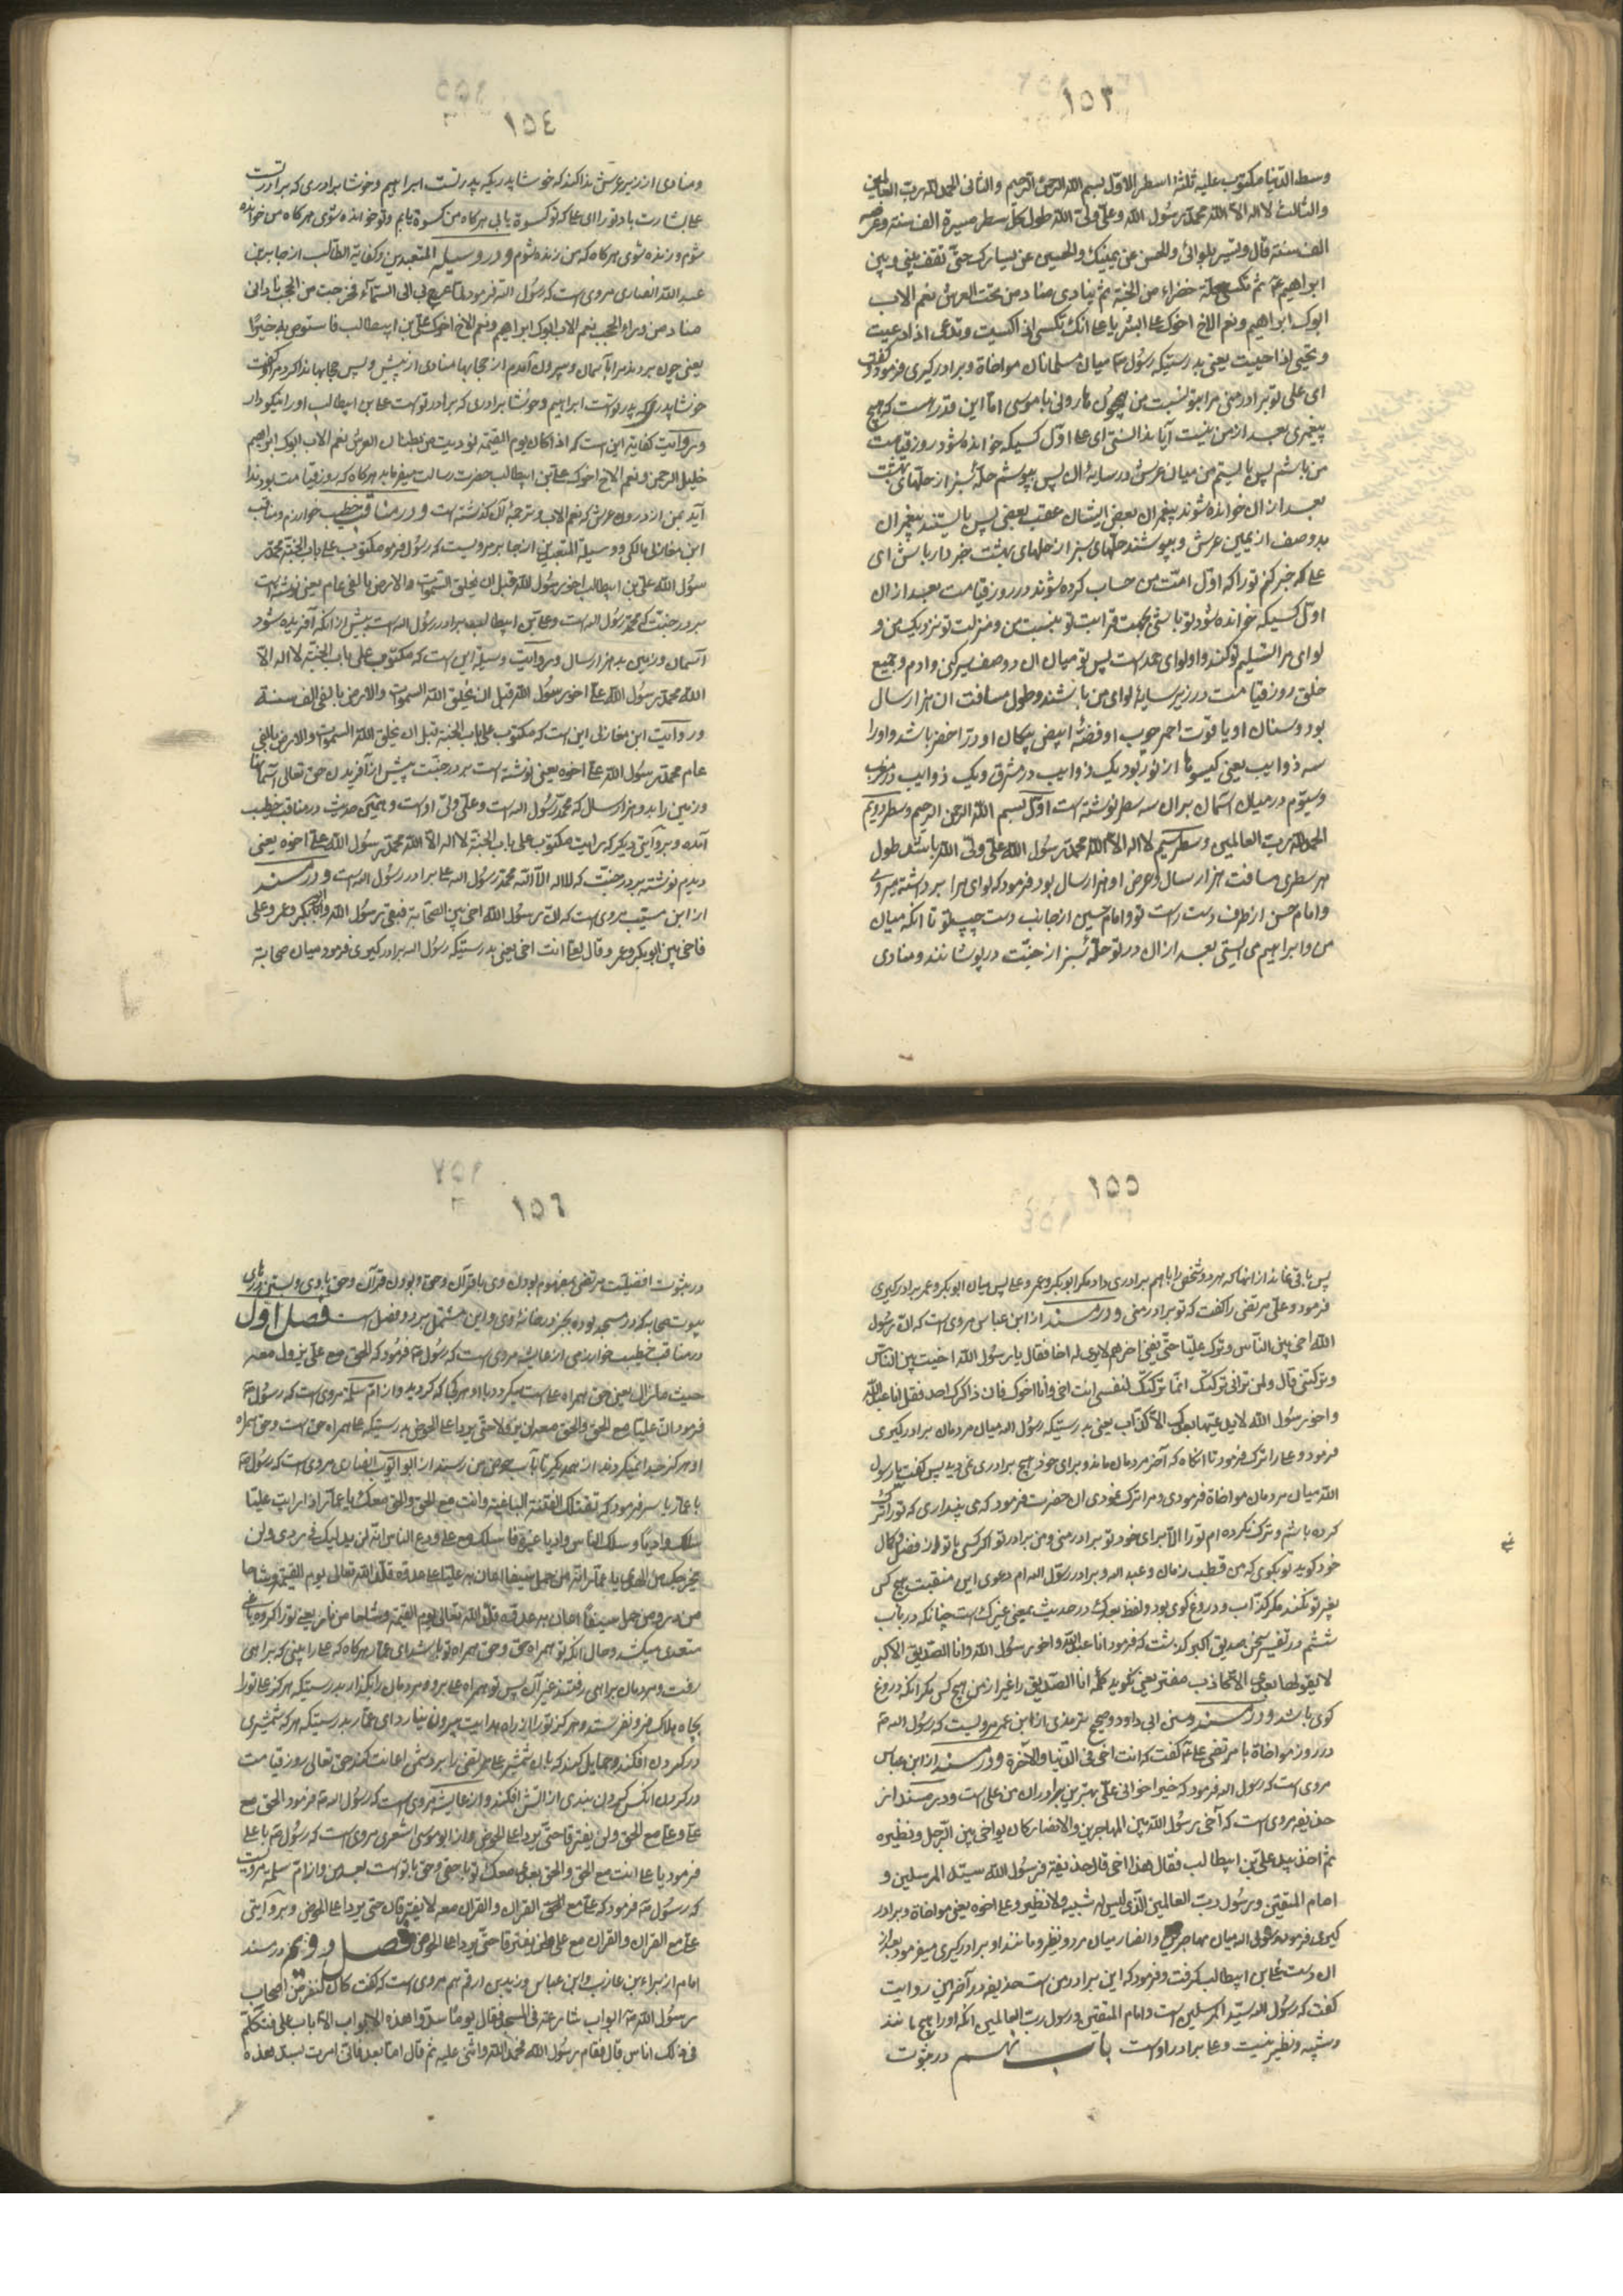 ١٥٣
وسط الدنیا مکتوب علیه ثلثة اسطر الاوّل بسم الله الرحمن الرحیم والثانی الحمد لله ربّ العالمین
والثالث لا اله الا الله محمد رسول الله وعلیّ ولیّ الله طول کلّ سطر مسیرة الف سنة وعرضه
الف سنة قال وتسیر بلوائی والحسن عن یمینک والحسین عن یسارک حتّی تقف بینی وبین
ابراهیم ثم تکسی حلّة خضراء من الجنّة ثم ینادی مناد من تحت العرش نعم الاب
ابوک ابراهیم ونعم الاخ اخوک علی ابشر یا علی انک تکسی اذا کسیت وتدعی اذا دعیت
وتحیی اذا حییت یعنی بدرستیکه رسول میان مسلمانان مواخاة و برادرگیری فرمود وگفت
ای علی تو برادر منی مر ا بتو نسبت من چون هارونی با موسی امّا این قدر هست که هیچ
پیغمبری بعد از من نیست آیا ندانستی ای علی اوّل کسیکه خوانده شود روز قیامت
من باشم پس بایستم من میان عرش در سایۀ آن پس بپوشم حلّۀ سبز از حلّهای بهشت
بعد از ان خوانده شوند پیغمبران بعض ایشان عقب بعضی پس بایستند پیغمبران
بدو صف از یمین عرش و بپوشند حلّهای سبز از حلّهای بهشت خبردار باش ای
علی که خبر کنم تو را که اوّل امّت من حساب کرده شوند در روز قیامت بعد از ان
اوّل کسیکه خوانده شود تو باشی بجهت قرابت تو بنسبت من و منزلت تو نزدیک من و
لوای مرا تسلیم تو کنند و او لوای حمد است پس تو میان ان دو صف سیر کنی و ادم و جمیع
خلق روز قیامت در زیر سایه لوای من باشند و طول مسافت ان هزار سال
بود و سنان او یاقوت احمر چوب او فضّۀ ابیض پیکان او درّ اخضر باشد و او را
سه ذوایب یعنی گیسوها از نور بود یک ذوایب در مشرق و یک ذوایب در مغرب
وسیّوم در میان آسمان بر ان سه سطر نوشته است اوّل بسم الله الرحمن الرحیم وسطر دویّم
الحمد لله ربّ العالمین وسطر سیم لا اله الا الله محمد رسول الله علیّ ولیّ الله باشد طول
هر سطری مسافت هزار سال و عرض او هزار سال بود فرمود که لوای مرا برداشته میروی
و امام حسن از طرف دست راست تو و امام حسین از جانب دست چپ تو تا انکه میان
من و ابراهیم می ایستی بعد از ان در تو حلّۀ سبز از جنّت درپوشانند و منادی
١٥٤
ومنادی از زیر عرش ندا کند که خوشا پدریکه پدر تست ابراهیم و خوشا برادری که برادر تست
علی بشارت باد تو را ای علی که تو کسوة یابی هرکاه من کسوة یابم و تو خوانده شوی هرکاه من خوانده
شوم و زنده شوی هرکاه که من زنده شوم و در وسیلة المتعبدین و کفایة الطالب از جابر بن
عبد الله انصاری مروی است که رسول الله فرمود لمّا عرج بی الی السمآء فخرجت من الحجب نادانی
مناد من وراء الحجب نعم الاب ابوک ابراهیم ونعم الاخ اخوک علی بن ابیطالب فاستوص به خیرًا
یعنی چون بردند مرا بآسمان و بیرون آمدم از حجابها منادی از پیش و پس حجابها ندا کرد مرا گفت
خوشا پدریکه پدر توست ابراهیم و خوشا برادری که برادر توست علی بن ابیطالب او را نیکو دار
و بروایت کفایه این است که اذا کان یوم القیمة نودیت من بطنان العرش نعم الاب ابوک ابراهیم
خلیل الرحمن ونعم الاخ اخوک علیّ بن ابیطالب حضرت رسالت میفرماید هرکاه که روز قیامت بود ندا
آید بمن از درون عرش که نعم الاب و ترجمۀ آن کذشته است و در مناقب خطیب خوارزم و مناقب
ابن مغازلی مالکی و وسیلة المتعبدین از جابر مرویست که رسول فرمود مکتوب علی باب الجنّة محمّد
رسول الله علیّ بن ابیطالب اخو رسول الله قبل ان یخلق السموات والارض بالفی عام یعنی نوشته است
بر در جنّت که محمّد رسول الله است و علیّ بن ابیطالب برادر رسول الله است پیش از انکه آفریده شود
آسمان و زمین به هزار سال و بروایت وسیله این است که مکتوب علی باب الجنّة لا اله الا
الله محمّد رسول الله علیّ اخو رسول الله قبل ان یخلق الله السموات والارض بالفی الف سنة
و روایت ابن مغازلی این است که مکتوب علی باب الجنة قبل ان یخلق الله السموات والارض بالفی
عام محمّد رسول الله علیّ اخوه یعنی نوشته است بر در جنّت پیش از آفریدن حق تعالی آسمانها
و زمین را بدو هزار سال که محمّد رسول الله است و علیّ ولیّ او است و همین حدیث در مناقب خطیب
آمده و بروآیتی دیکر که رایت مکتوب علی باب الجنّة لا اله الا الله محمّد رسول الله علیّ اخوه یعنی
دیدم نوشته بر در جنّت که لا اله الا الله محمّد رسول الله علی برادر رسول الله است و در مسند
از ابن مسیّب مروی است که انّ رسول الله اخی بین الصحابة فبقی رسول الله وابوبکر وعمر وعلی
فاخی بین ابوبکر وعمر وقال لعلیّ انت اخی یعنی بدرستیکه رسول الله برادر کیری فرمود میان صحابة
١٥٥
پس باقی نماند از انها که هر دو شخص را با هم برادری داد مکر ابوبکر و عمر و علی پس میان ابوبکر و عمر برادر کیری
فرمود و علیّ مرتضی را کفت که تو برادر منی و در مسند از ابن عباس مروی است که انّ رسول
الله اخی بین النّاس وترک علیّا حتّی بقی اخرهم لا یری له اخا فقال یا رسول الله اخیت بین النّاس
وترکتنی قال ولمن ترانی ترکتک انّما ترکتک لنفسی انت اخی وانا اخوک فان ذاکرک احد فقل انا عبد الله
واخو رسول الله لا یدعیها بعدک الا کذّاب یعنی بدرستیکه رسول الله میان مردمان برادر کیری
فرمود و علی را ترک فرمود تا انکاه که آخر مردمان ماند و برای خود هیچ برادری نمی دید پس کفت یا رسول
الله میان مردمان مواخاة فرمودی و مرا ترک نمودی ان حضرت فرمود که می پنداری که تو را ترک
کرده باشم و ترک نکرده ام تو را الّا برای خود تو برادر منی و من برادر تو اکر کسی با تو از فضل و کمال
خود کوید تو بکوی که من قطب زمان و عبد الله و برادر رسول الله ام دعوی این منقبت هیچ کس
بغیر تو نکند مکر کذّاب و دروغ کوی بود و لفظ بعدک در حدیث بمعنی غیرک است چنانکه در باب
ششم در تفسیر سخن صدیق اکبر کذشت که فرمود انا عبد الله واخو رسول الله وانا الصدّیق الاکبر
لا یقولها بعدی الا کاذب مفتر یعنی نکوید کلمۀ انا الصدّیق را غیر از من هیچ کس مکر انکه دروغ
کوی باشد و در مسند و سنن ابی داود و صحیح ترمذی از ابن عمر مرویست که رسول الله
در روز مواخاة با مرتضی علی گفت که انت اخی فی الدّنیا والآخرة و در مسند از ابن عباس
مروی است که رسول الله فرمود که خیر اخوانی علیّ بهترین برادران من علی است و در مسند از
حذیفه مروی است که آخی رسول الله بین المهاجرین والانصار کان یواخی بین الرّجل ونظیره
ثم اخذ بید علیّ بن ابیطالب فقال هذا اخی قال حذیفة فرسول الله سیّد المرسلین و
امام المتقین ورسول ربّ العالمین الّذی لیس له شبیه ولا نظیر وعلیّ اخوه یعنی مواخاة و برادر
کیری فرمود رسول الله میان مهاجر و انصار میان مرد و نظیر و مانند او برادر کیری میفرمود بعد از
ان دست علیّ بن ابیطالب کرفت و فرمود که این برادر من است حذیفه در آخر این روایت
کفت که رسول الله سیّد المرسلین است و امام المتقین و رسول ربّ العالمین آنکه او را هیچ مانند
و شبیه و نظیر نیست و علی برادر اوست باب نهم در ثبوت
١٥٦
در ثبوت افضلیّت مرتضی بمفهوم بودن وی با قرآن و حقّ و بودن قرآن و حقّ با وی و بستن درهای
بیوت صحابه که در مسجد بوده بجز در خانۀ وی و این مشتمل بر دو فصل است فصل اوّل
در مناقب خطیب خوارزمی از عایشه مروی است که رسول فرمود که الحقّ مع علیّ یزول معه
حیث ما زال یعنی حق همراه علی است میکردد با او هر کجا که کردید و از امّ سلمه مروی است که رسول
فرمود انّ علیّا مع الحقّ والحقّ معه لن یفترقا حتّی یردا علیّ الحوض بدرستیکه علی همراه حق است و حق همراه
او هرکز جدا نمیکردند از همدیکر تا بآب حوض من رسند از ابو ایّوب انصاری مروی است که رسول
با عمّار یاسر فرمود که تقتلک الفئة الباغیة وانت مع الحقّ والحقّ معک یا عمّار اذا رایت علیّا
سلک وادیًا وسلک الناس وادیا غیره فاسلک مع علی ودع الناس انّه لن یدلیک فی ردی ولن
یخرجک من الهدی یا عمّار انّه من حمل سیفا اعان به علیّا علی عدوّه قلّده الله تعالی یوم القیمة وشاحا
من درّ ومن حمل سیفًا اعان به عدوّه قلّده الله تعالی یوم القیمة وشاحا من نار یعنی تو را کروه باغی
متعدی میکشد و حال آنکه تو همراه حقّ و حق همراه تو باشد ای عمّار هرکاه که علی را بینی که براهی
رفت و مردمان براهی رفتند غیر آن پس تو همراه علی برو و مردمان را بکذار بدرستیکه هرکز علی تو را
بچاه هلاک فرو نفرستد و هرکز تو را از راه هدایت بیرون نیارد ای عمّار بدرستیکه هر که شمشیری
در کردن افکند و حمایل کند که بان شمشیر علی مرتضی را بر دشمن اعانت کند حق تعالی روز قیامت
در کردن انکس کردن بندی از آتش افکند و از عایشه مروی است که رسول الله فرمود الحق مع
علیّ وعلیّ مع الحقّ ولن یفترقا حتّی یردا علیّ الحوض و از ابو موسی اشعری مروی است که رسول با علی
فرمود یا علی انت مع الحق والحقّ بعدی معک تو با حقی و حق با تو است بعد من و از امّ سلمه مرویست
که رسول فرمود که علیّ مع الحقّ القران والقران معه لا یفترقان حتی یردا علیّ الحوض و بروآیتی
علیّ مع القران والقران مع علی لن یفترقا حتّی یردا علیّ الحوض فصل دویّم در مسند
امام از براء بن عازب و ابن عباس و زید بن ارقم هم مروی است که کفت کان لنفر من اصحاب
رسول الله ابواب شارعة فی المسجد فقال یومًا سدّوا هذه الابواب الا باب علی فتکلّم
فی ذلک اناس قال فقام رسول الله فحمد الله واثنی علیه ثم قال امّا بعد فانّی امرت بسد هذه